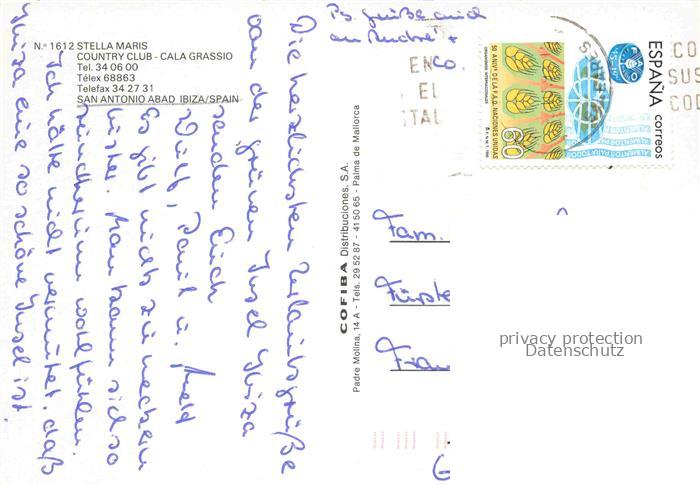 N.º 1612 STELLA MARIS
COUNTRY CLUB - CALA GRASSIO
Tel. 34 06 00
Télex 68863
Telefax 34 27 31
SAN ANTONIO ABAD IBIZA/SPAIN
Die herzlichsten Urlaubsgrüße
von der grünen Insel Ibiza
senden Euch
Es gibt nichts zu meckern
hier. Man kann sich so
rundherum wohl fühlen.
Ich hätte nicht vermutet, daß
Ibiza eine so schöne Insel ist.
Ps. Grüße auch
an
COFIBA Distribuciones, S.A.
Padre Molina, 14 A - Tels. 29 52 87 - 41 50 65 - Palma de Mallorca
ESPAÑA correos
FAO
50 ANIV.º DE LA F.A.O. NACIONES UNIDAS
ALIMENTOS PARA TODOS
60
Fam.
Fürste
privacy protection
Datenschutz